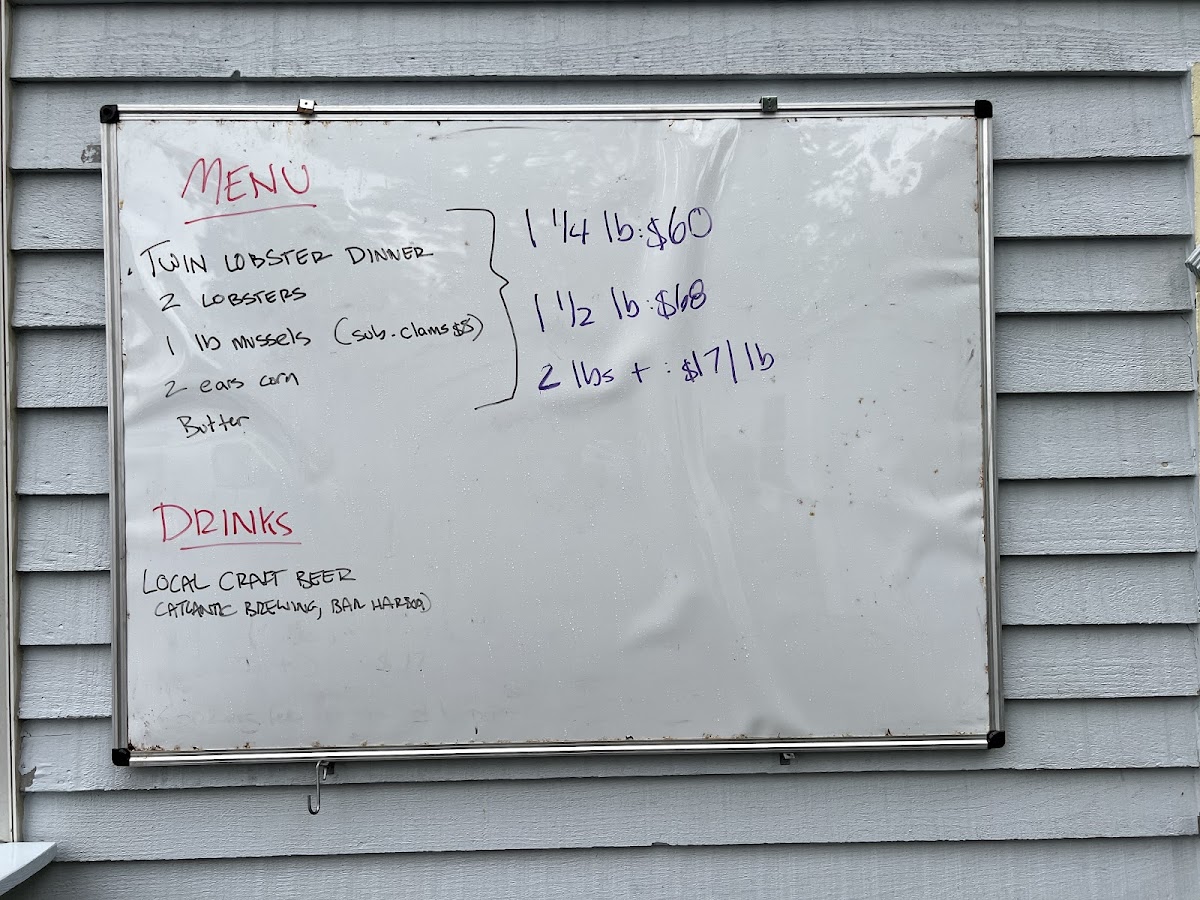 MENU
. TWIN LOBSTER DINNER
2 LOBSTERS
1 lb mussels (sub. clams $8)
2 ears corn
Butter
1 1/4 lb: $60
1 1/2 lb: $68
2 lbs + : $17/lb
DRINKS
LOCAL CRAFT BEER
(ATLANTIC BREWING, BAR HARBOR)